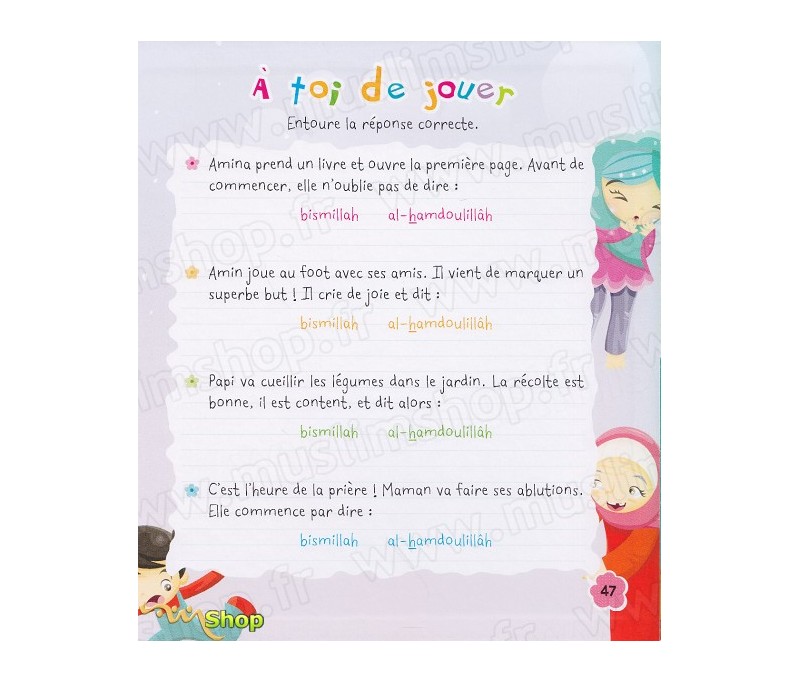 À toi de jouer
Entoure la réponse correcte.
Amina prend un livre et ouvre la première page. Avant de
commencer, elle n'oublie pas de dire :
bismillah al-hamdoulillâh
Amin joue au foot avec ses amis. Il vient de marquer un
superbe but ! Il crie de joie et dit :
bismillah al-hamdoulillâh
Papi va cueillir les légumes dans le jardin. La récolte est
bonne, il est content, et dit alors :
bismillah al-hamdoulillâh
C'est l'heure de la prière ! Maman va faire ses ablutions.
Elle commence par dire :
bismillah al-hamdoulillâh
47
Shop
www.muslimshop.fr